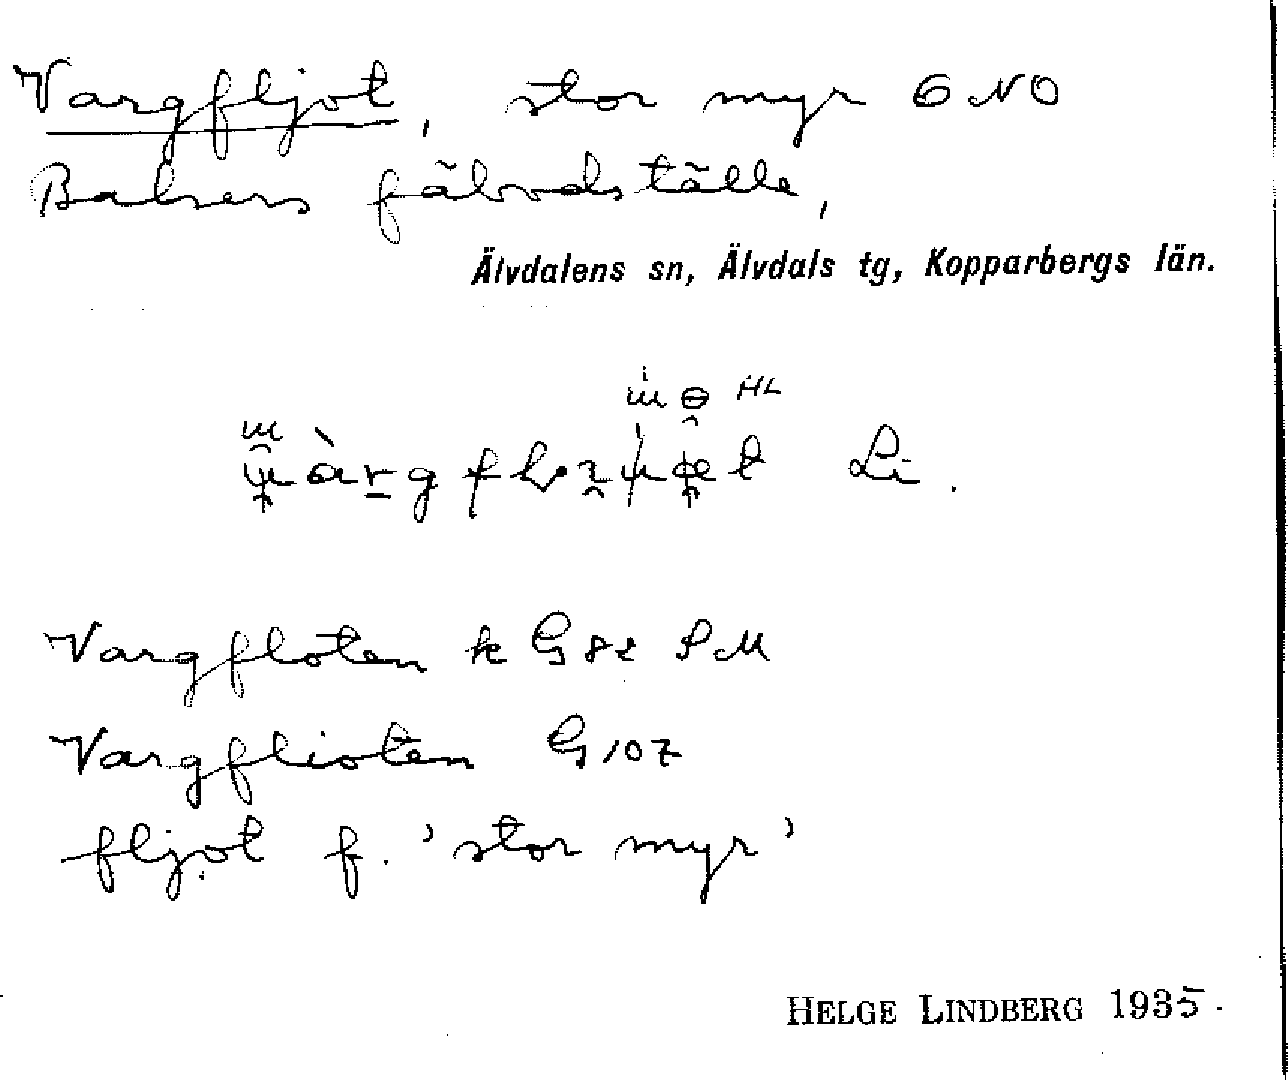 Vargfljot, stor myr 6 NO
Balsers fäbodställe,
Älvdalens sn, Älvdals tg, Kopparbergs län.
HL
Li.
Vargfloten k G 82 SM
Vargflioten G 107
fljot f. 'stor myr'
HELGE LINDBERG 1935.